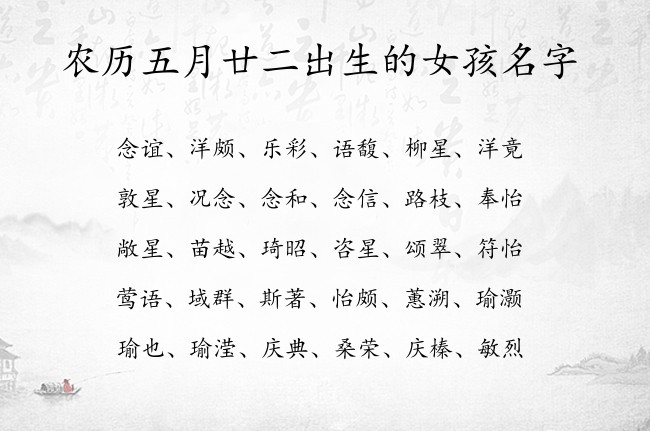 农历五月廿二出生的女孩名字
念谊、洋颇、乐彩、语馥、柳星、洋竟
敦星、况念、念和、念信、路枝、奉怡
敞星、苗越、琦昭、咨星、颂翠、符怡
莺语、域群、斯著、怡颇、蕙溯、瑜灏
瑜也、瑜滢、庆典、桑荣、庆榛、敏烈